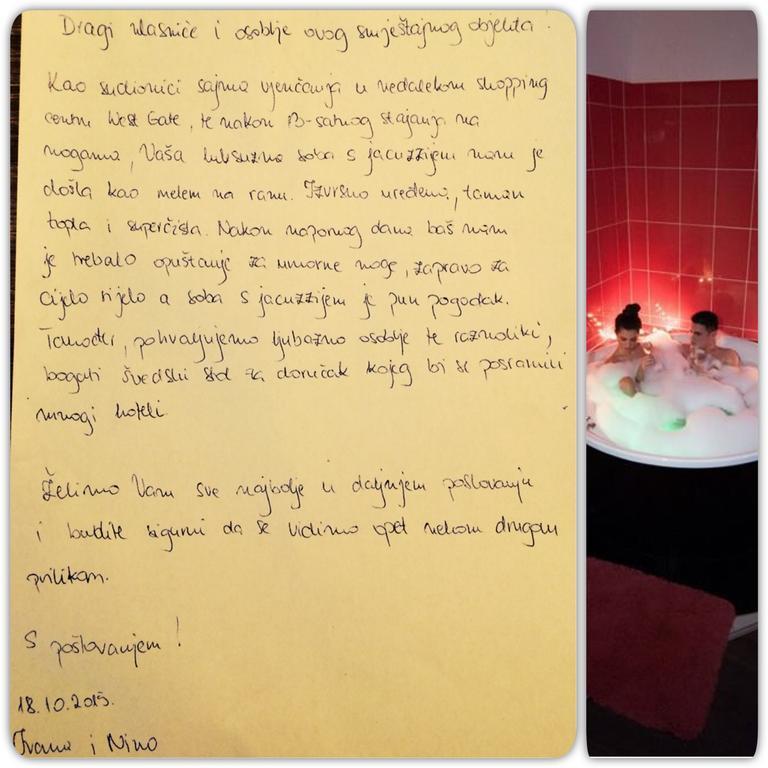 Dragi vlasniče i osoblje ovog smještajnog objekta.
Kao sudionici sajma vjenčanja u nedalekom shopping
centru West Gate, te nakon 13-satnog stajanja na
nogama, Vaša luksuzna soba s jacuzzijem nam je
došla kao melem na ranu. Izvrsno uređena, taman
topla i superčista. Nakon napornog dana baš nam
je trebalo opuštanje za umorne noge, zapravo za
cijelo tijelo a soba s jacuzzijem je pun pogodak.
Također, pohvaljujemo ljubazno osoblje te raznoliki,
bogati švedski stol za doručak kojeg bi se posramili
mnogi hoteli
Želimo Vam sve najbolje u daljnjem poslovanju
i budite sigurni da se vidimo opet nekom drugom
prilikom.
S poštovanjem!
18.10.2015.
Ivana i Nino